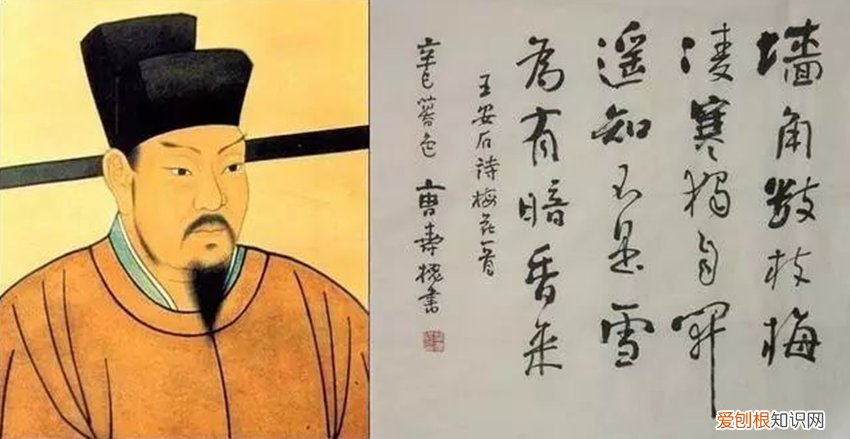 墙角数枝梅
凌寒獨自開
遥知不是雪
為有暗香来
王安石诗梅花一首
辛巳
书
爱刨根知识网